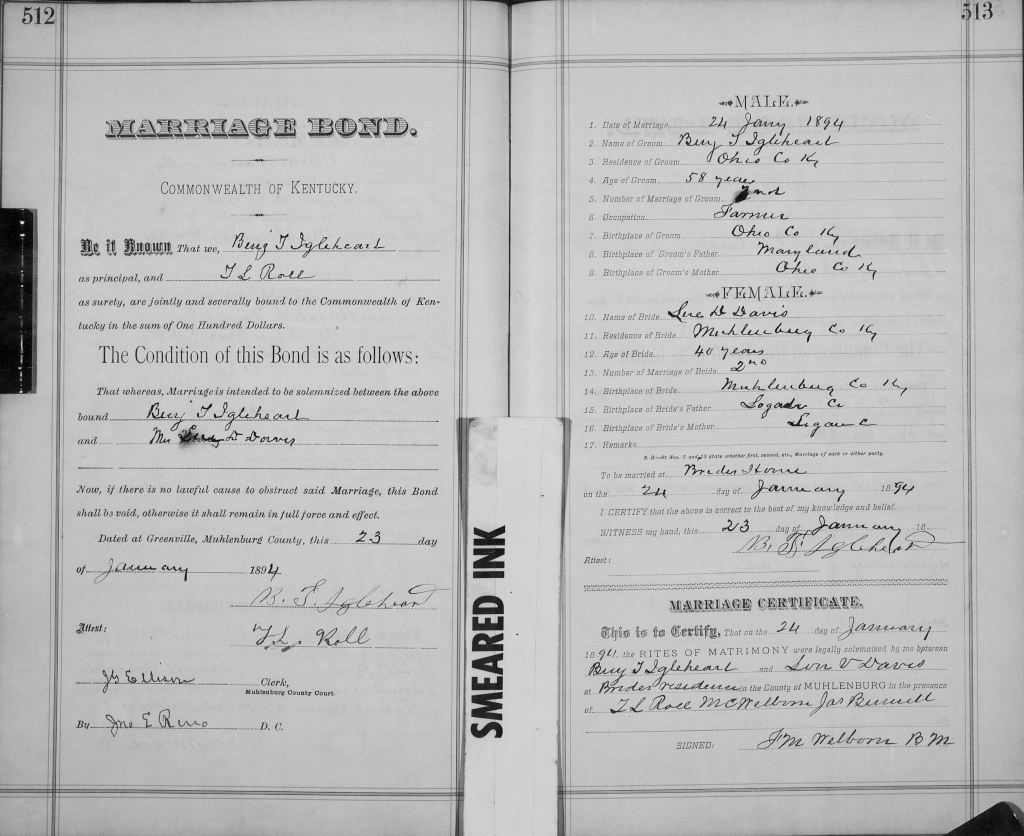 512
MARRIAGE BOND.
COMMONWEALTH OF KENTUCKY.
Be it Known That we, Benj T Igleheart
as principal, and T L Roll
as surety, are jointly and severally bound to the Commonwealth of Ken-
tucky in the sum of One Hundred Dollars.
The Condition of this Bond is as follows:
That whereas, Marriage is intended to be solemnized between the above
bound Benj T Igleheart
and Mrs D Davis
Now, if there is no lawful cause to obstruct said Marriage, this Bond
shall be void, otherwise it shall remain in full force and effect.
Dated at Greenville, Muhlenburg County, this 23 day
of January 1894
B. T. Igleheart
Attest: T L. Roll
JG Ellison Clerk,
Muhlenburg County Court.
By Jno E Reno D. C.
SMEARED INK
513
MALE.
1. Date of Marriage 24 Jany 1894
2. Name of Groom Benj T Igleheart
3. Residence of Groom Ohio Co Ky
4. Age of Groom 58 years
5. Number of Marriage of Groom 2nd
6. Occupation Farmer
7. Birthplace of Groom Ohio Co Ky
8. Birthplace of Groom's Father Maryland
9. Birthplace of Groom's Mother Ohio Co Ky
FEMALE.
10. Name of Bride D Davis
11. Residence of Bride Muhlenburg Co Ky
12. Age of Bride 40 years
13. Number of Marriage of Bride 2nd
14. Birthplace of Bride Muhlenburg Co Ky
15. Birthplace of Bride's Father Logan Co
16. Birthplace of Bride's Mother Logan C
17. Remarks
N. B.—At Nos. 5 and 13 state whether first, second, etc., Marriage of each or either party.
To be married at Brides Home
on the 24 day of January 1894
I CERTIFY that the above is correct to the best of my knowledge and belief.
WITNESS my hand, this 23 day of January 18
B. T. Igleheart
Attest:
MARRIAGE CERTIFICATE.
This is to Certify, That on the 24 day of January
1894, the RITES OF MATRIMONY were legally solemnized by me between
Benj T Igleheart and Davis
at Brides residence in the County of MUHLENBURG in the presence
of T L Roll M C Welborn Jas
SIGNED: J M Welborn B M